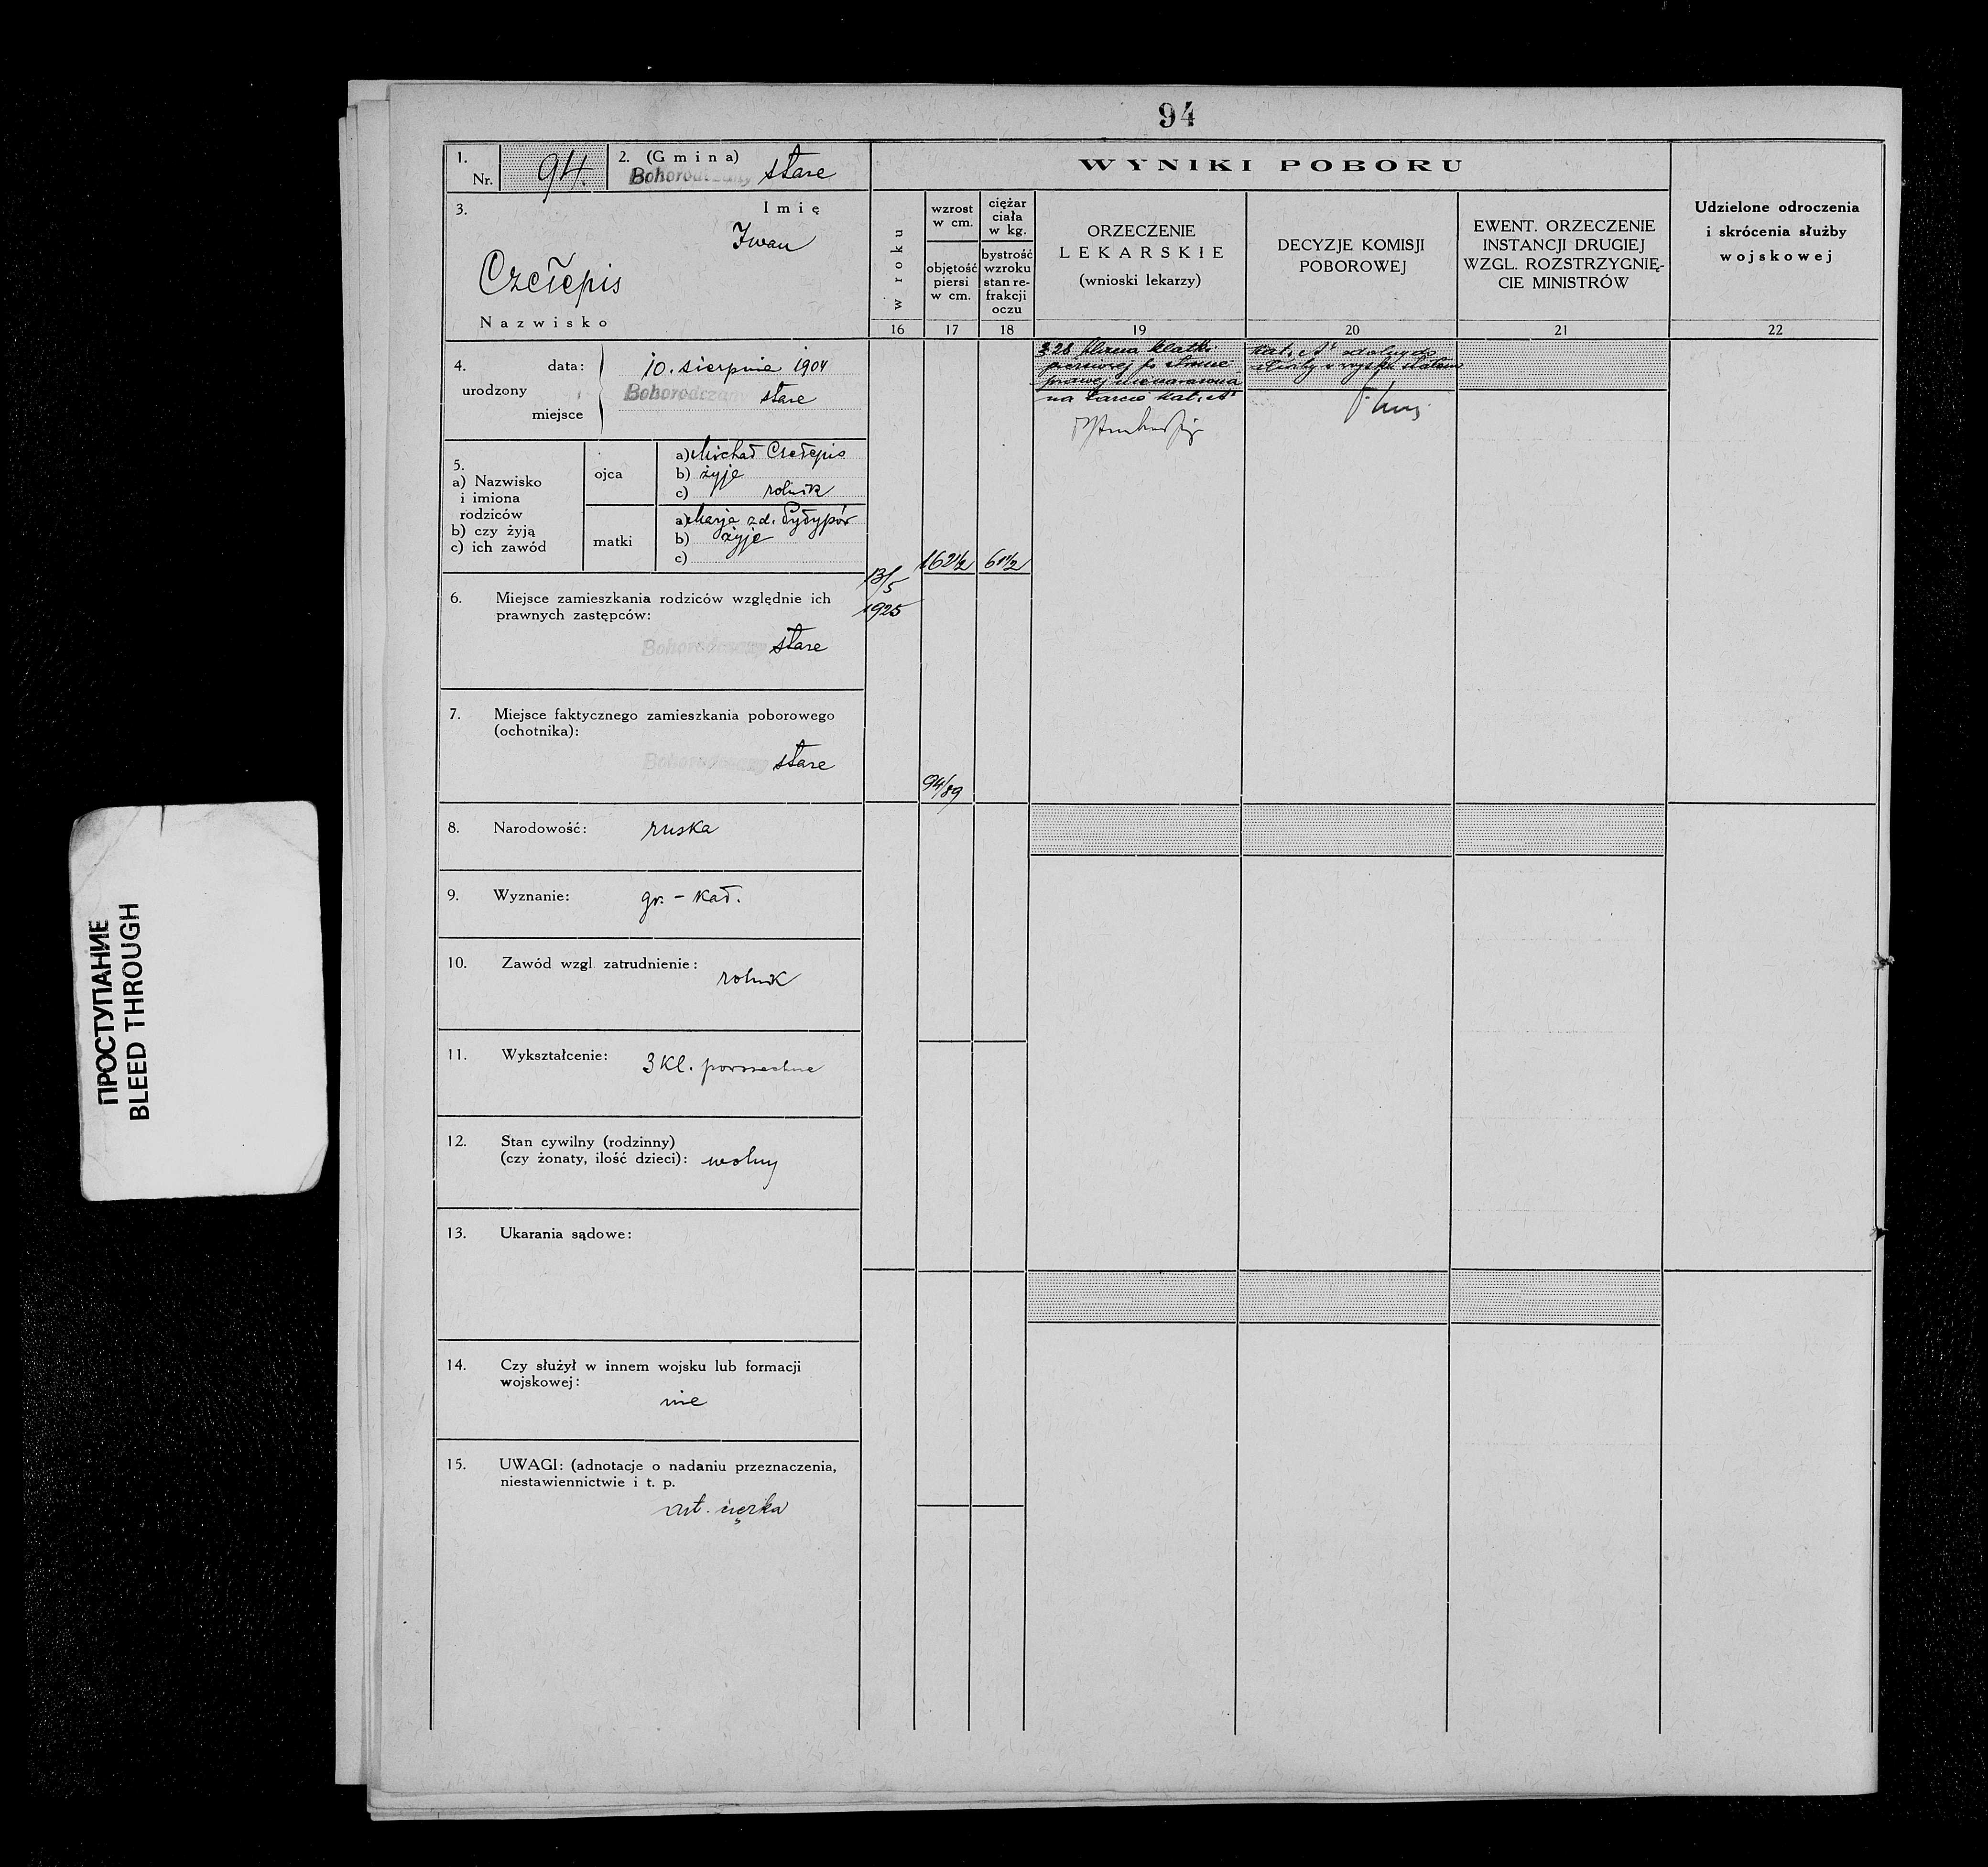 94
1. Nr. 94.
2. (Gmina)
Bohorodczany stare
3. Imię
Iwan
Czełepis
Nazwisko
4. urodzony
data: 10. sierpnia 1904
miejsce Bohorodczany stare
5.
a) Nazwisko
i imiona
rodziców
b) czy żyją
c) ich zawód
ojca
a) Michał Czełepis
b) żyje
c) rolnik
matki
a) Marja z d.
b) żyje
c)
6. Miejsce zamieszkania rodziców względnie ich
prawnych zastępców:
Bohorodczany stare
7. Miejsce faktycznego zamieszkania poborowego
(ochotnika):
Bohorodczany stare
8. Narodowość: ruska
9. Wyznanie: gr. - kat.
10. Zawód wzgl. zatrudnienie:
rolnik
11. Wykształcenie: 3 kl. powszechne
12. Stan cywilny (rodzinny)
(czy żonaty, ilość dzieci): wolny
13. Ukarania sądowe:
14. Czy służył w innem wojsku lub formacji
wojskowej:
nie
15. UWAGI: (adnotacje o nadaniu przeznaczenia,
niestawiennictwie i t. p.
art. ciężka
WYNIKI POBORU
w roku
16
13/5
1925
wzrost
w cm.
objętość
piersi
w cm.
17
162 1/2
94/89
ciężar
ciała
w kg.
bystrość
wzroku
stan re-
frakcji
oczu
18
61 1/2
ORZECZENIE
LEKARSKIE
(wnioski lekarzy)
19
328 blizna klatki
piersiowej po stronie
prawej
kat. A
DECYZJE KOMISJI
POBOROWEJ
20
kat. A zdolny do
służby w wojsku stałem
EWENT. ORZECZENIE
INSTANCJI DRUGIEJ
WZGL. ROZSTRZYGNIĘ-
CIE MINISTRÓW
21
Udzielone odroczenia
i skrócenia służby
wojskowej
22
ПРОСТУПАНИЕ
BLEED THROUGH